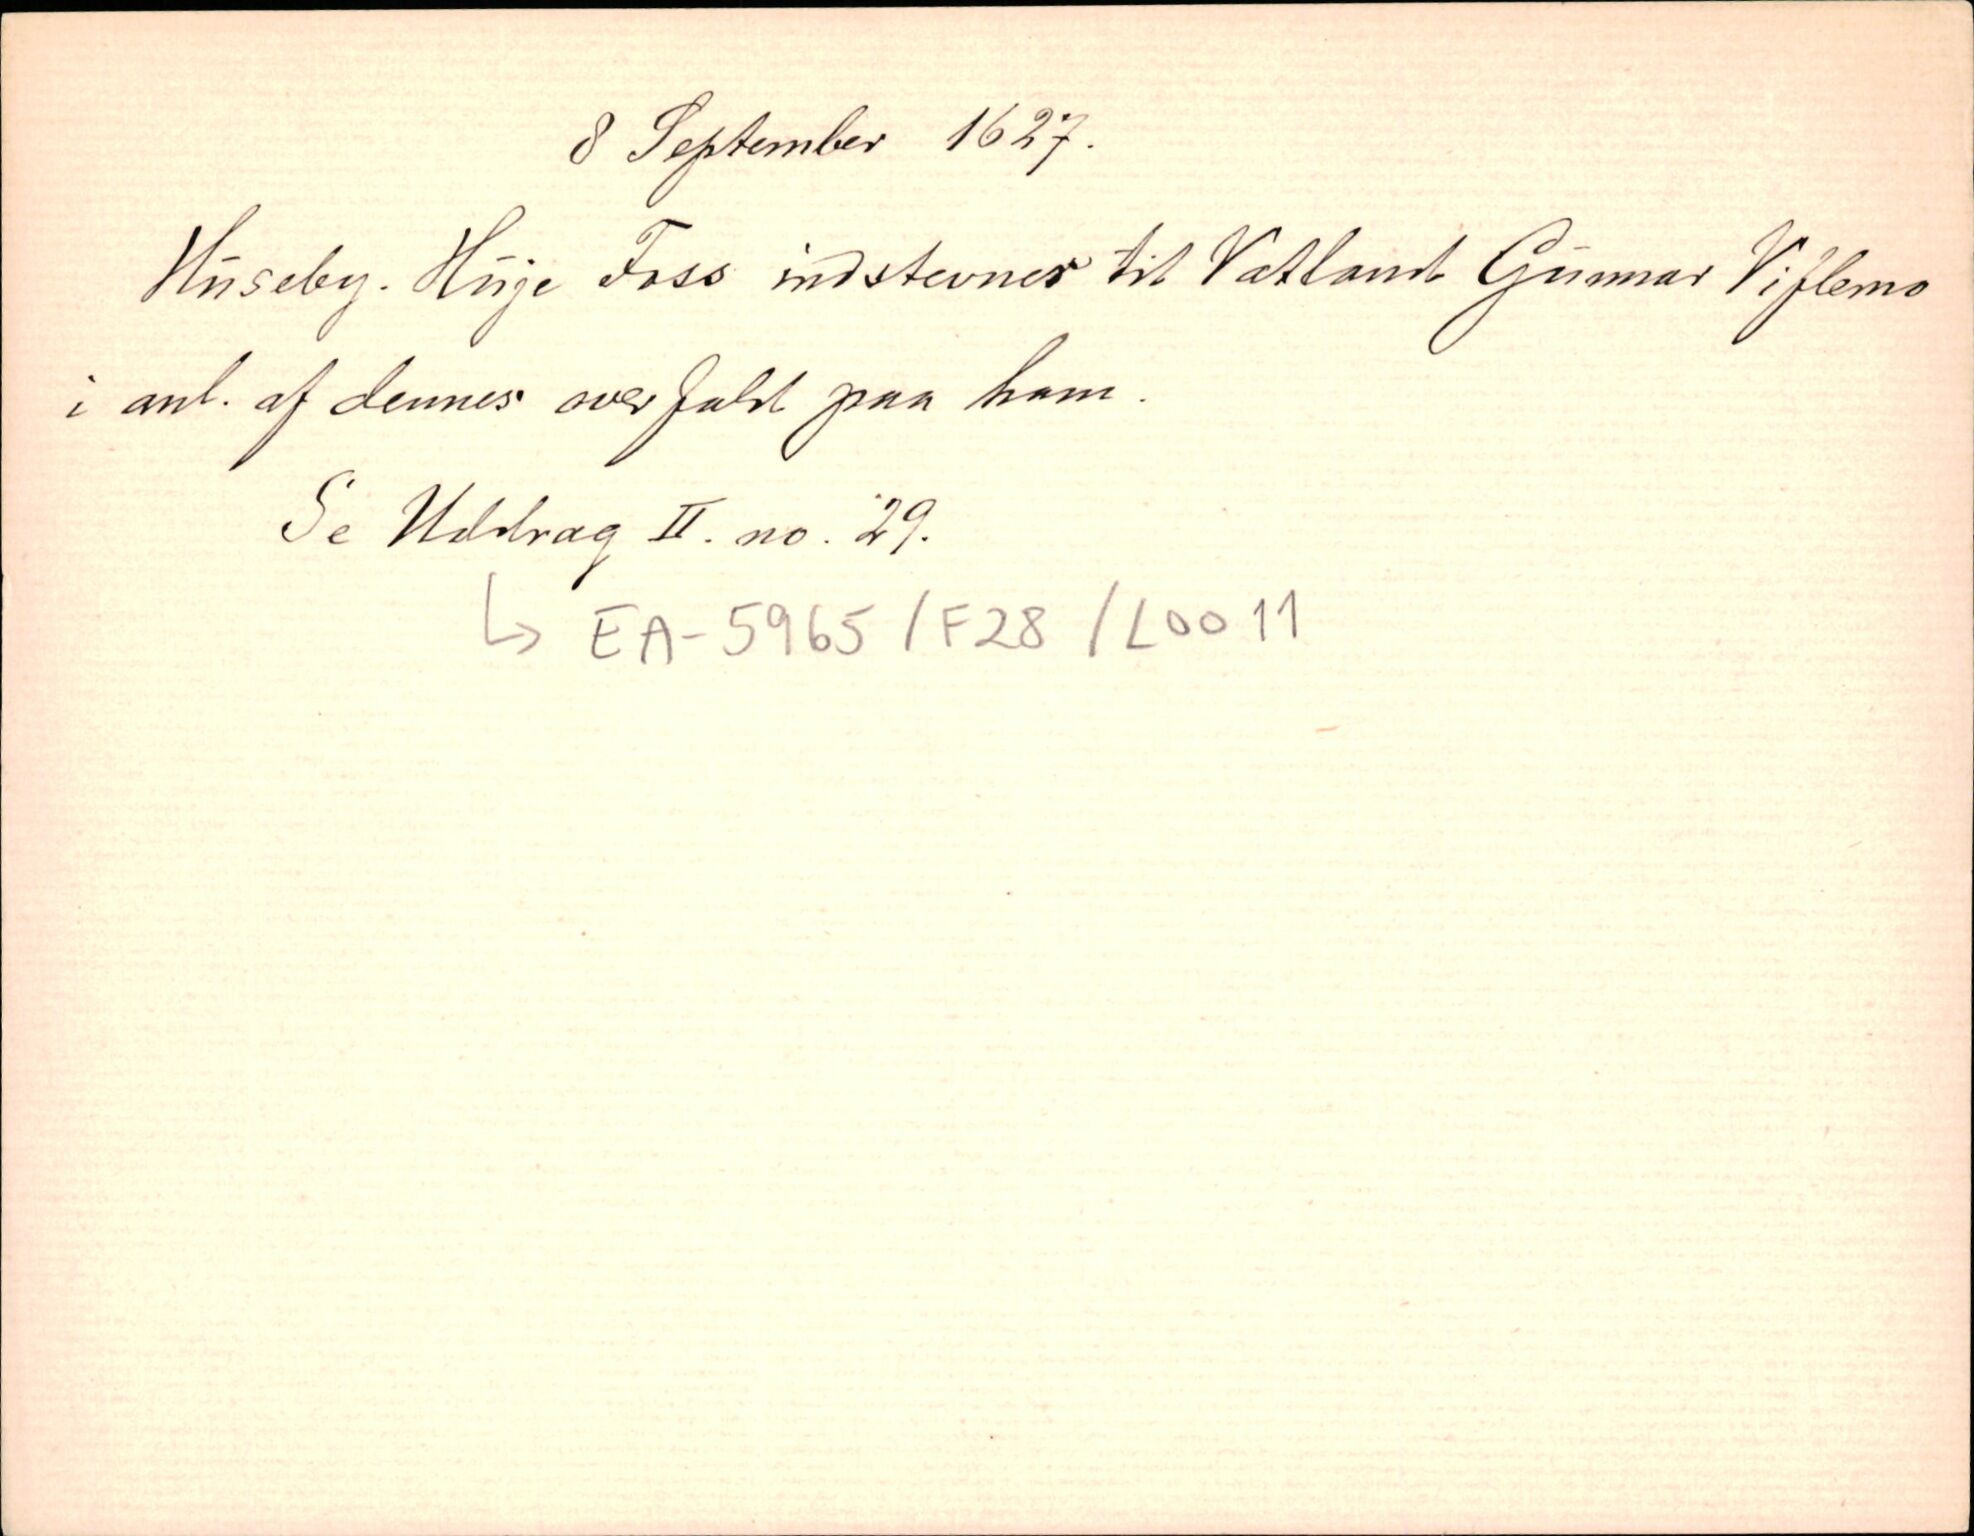 8 September 1627.
Huseby. Huje Foss indstevner til Vatland Gunnar Viflemo
i anl. af dennes overfald paa ham.
Se Uddrag II. no. 29.
↳ EA-5965/F28/L0011